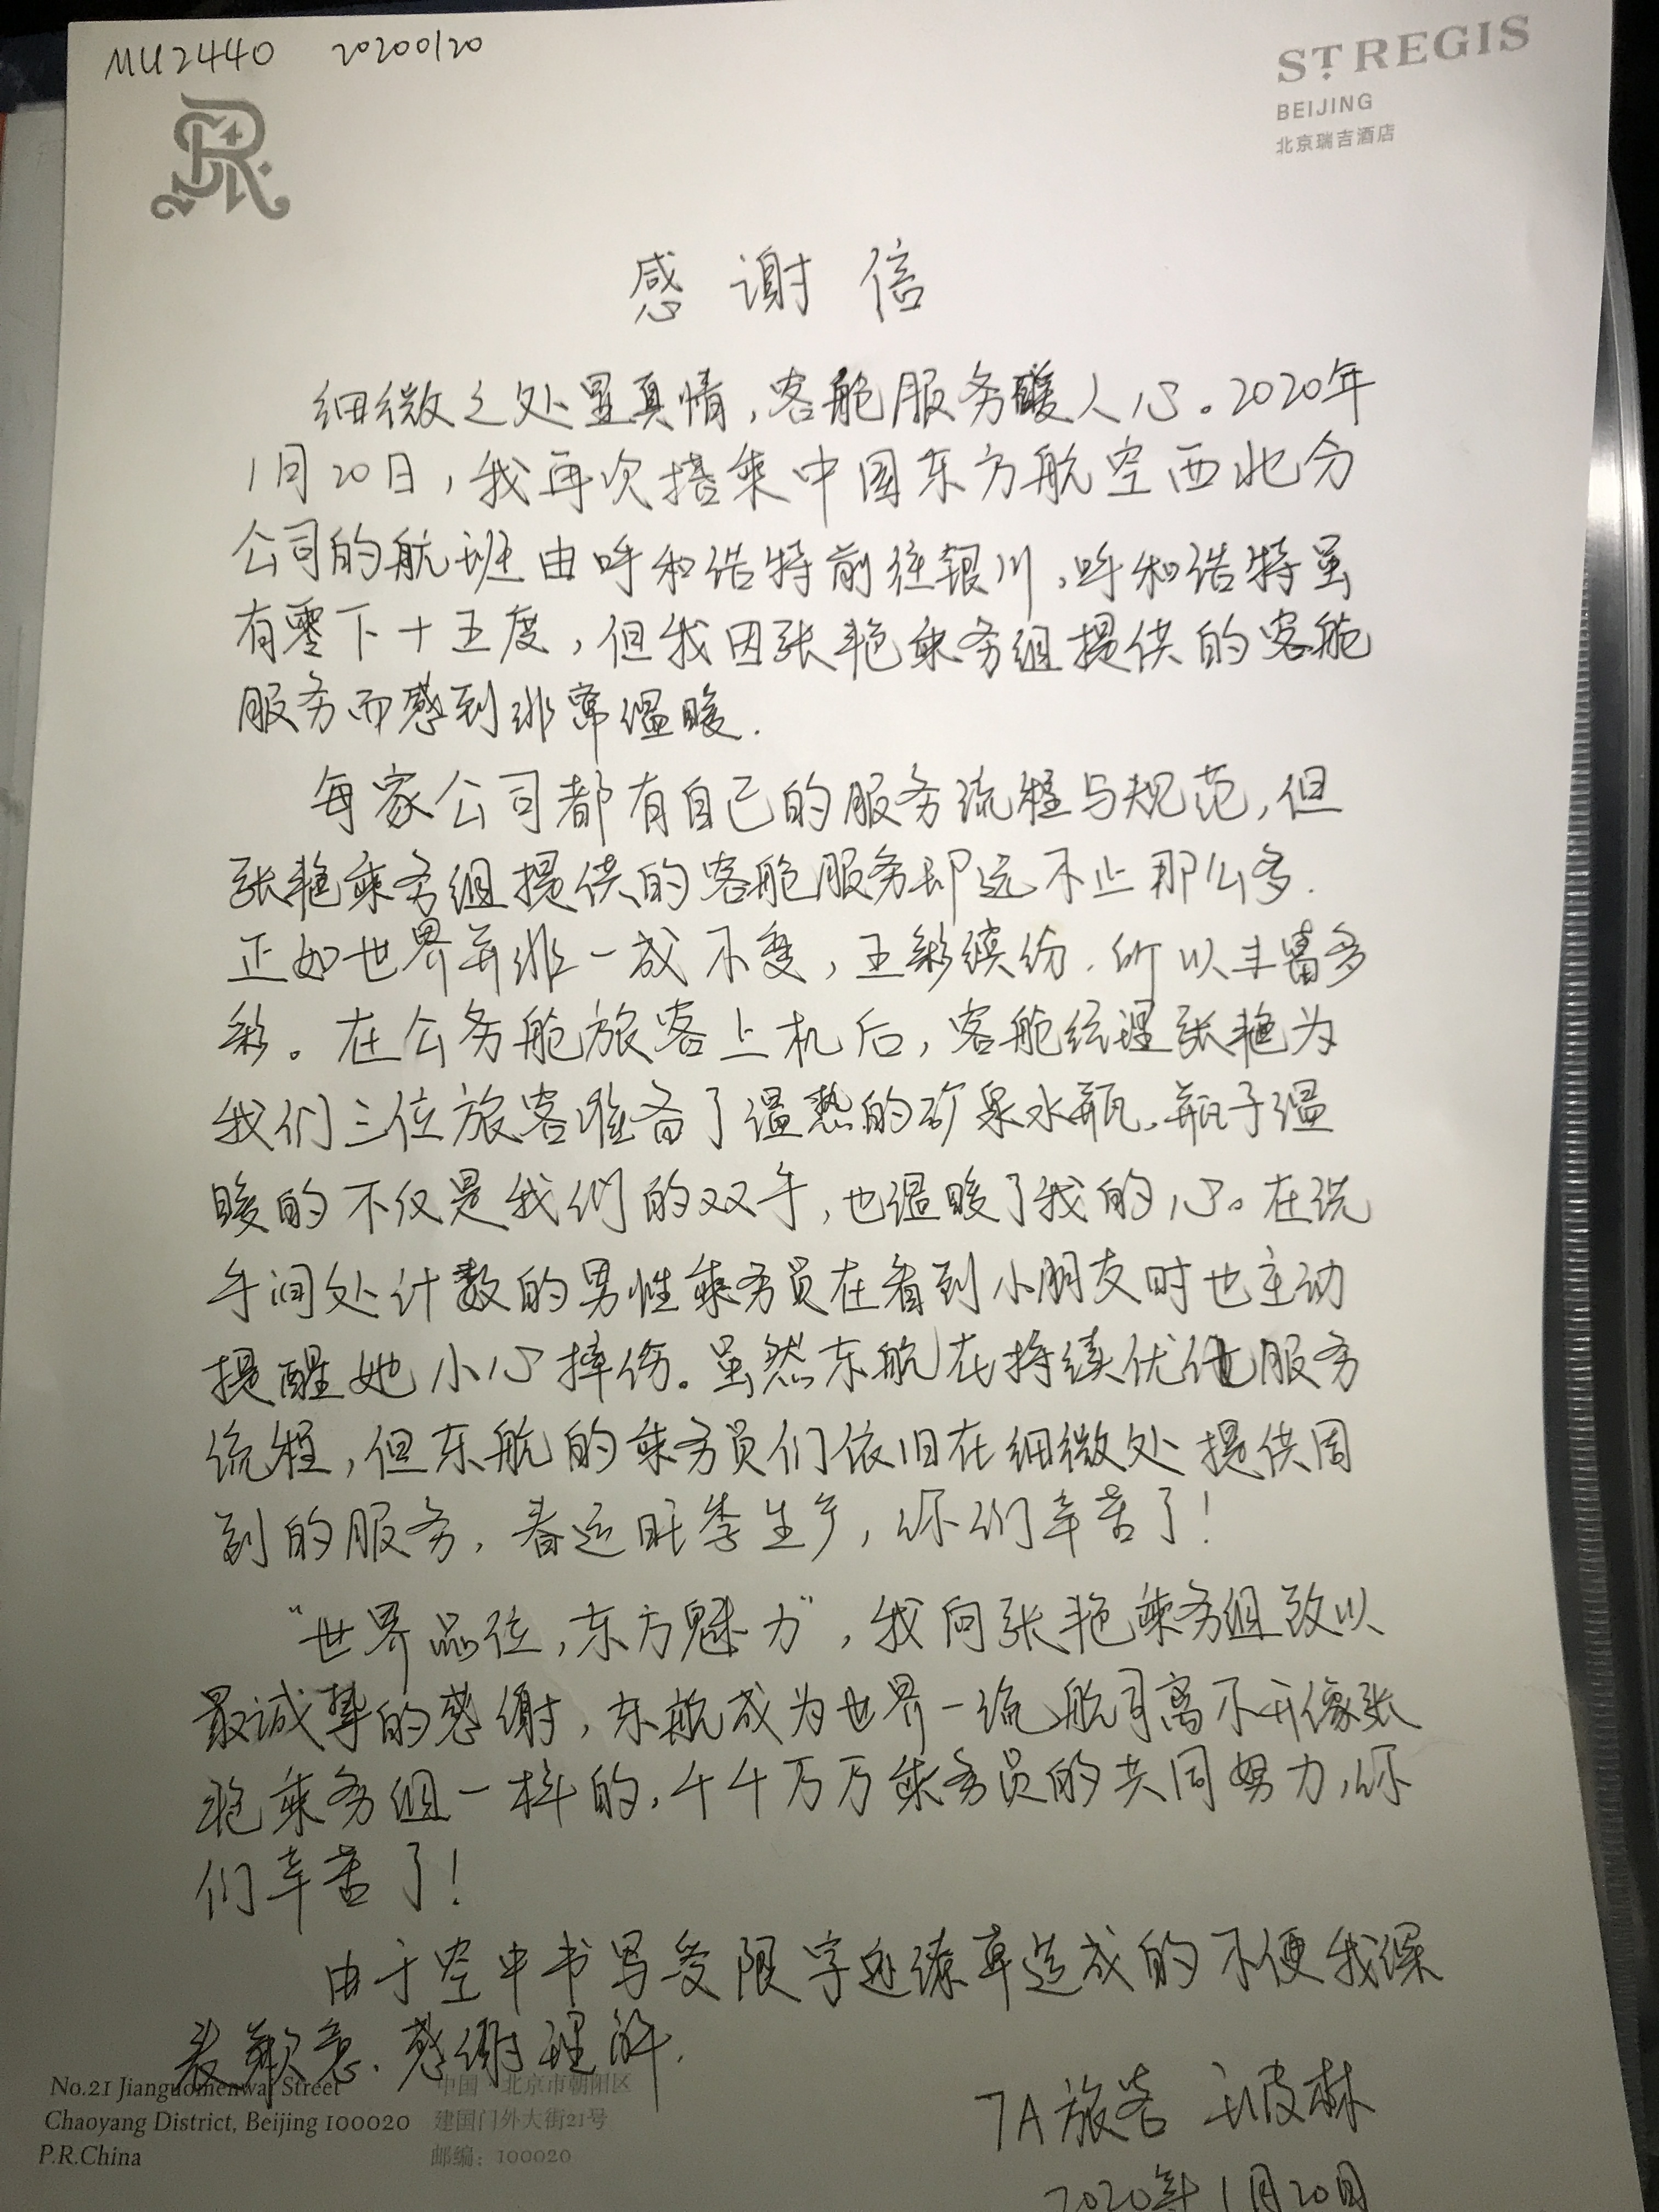 MU2440 20200120
ST REGIS
BEIJING
北京瑞吉酒店
感谢信
细微之处显真情，客舱服务暖人心。2020年
1月20日，我再次搭乘中国东方航空西北分
公司的航班由呼和浩特前往银川，呼和浩特虽
有零下十五度，但我因张艳乘务组提供的客舱
服务而感到非常温暖.
每家公司都有自己的服务流程与规范，但
张艳乘务组提供的客舱服务却远不止那么多.
正如世界并非一成不变，五彩缤纷.所以丰富多
彩。在公务舱旅客上机后，客舱经理张艳为
我们三位旅客准备了温热的矿泉水瓶.瓶子温
暖的不仅是我们的双手，也温暖了我的心。在洗
手间处计数的男性乘务员在看到小朋友时也主动
提醒她小心摔伤。虽然东航在持续优化服务
流程，但东航的乘务员们依旧在细微处提供周
到的服务，春运旺季生产，你们辛苦了！
“世界品位，东方魅力”，我向张艳乘务组致以
最诚挚的感谢，东航成为世界一流航司离不开像张
艳乘务组一样的，千千万万乘务员的共同努力，你
们辛苦了！
由于空中书写受限字迹潦草造成的不便我深
表歉意.感谢理解.
No.21 Jianguomenwai Street 中国·北京市朝阳区
Chaoyang District, Beijing 100020 建国门外大街21号
P.R.China 邮编：100020
7A旅客
2020年1月20日